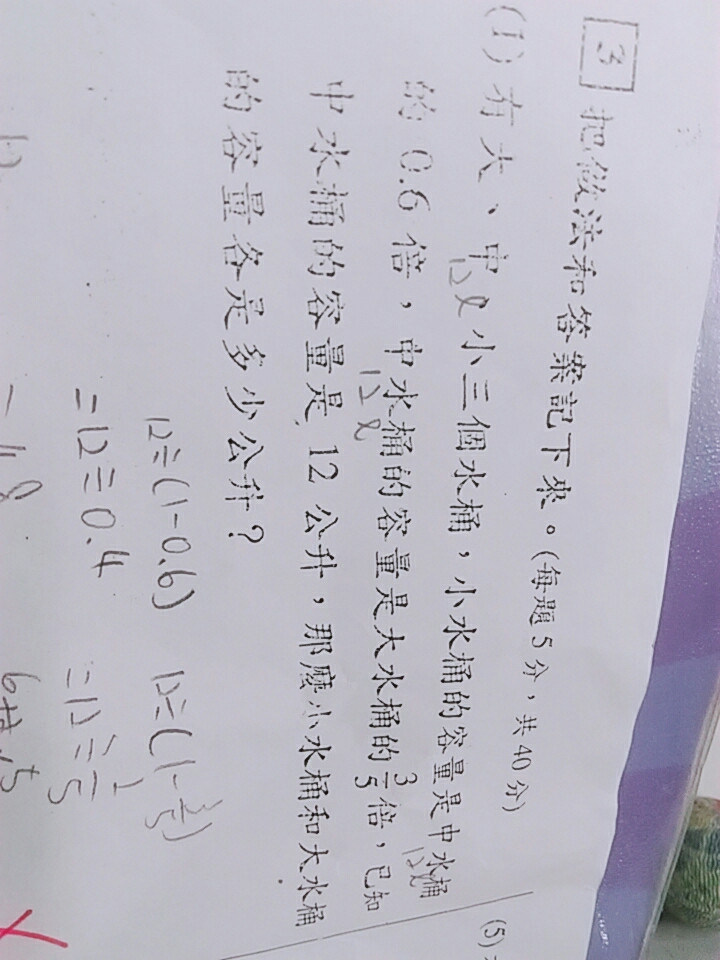 3 把做法和答案記下來。(每題5分，共40分)
(1) 有大、中、小三個水桶，小水桶的容量是中水桶
12ℓ 12ℓ
的0.6倍，中水桶的容量是大水桶的3/5倍，已知
12ℓ
中水桶的容量是12公升，那麼小水桶和大水桶
的容量各是多少公升？
12÷(1-0.6) 12÷(1-3/5)
=12÷0.4
(5)